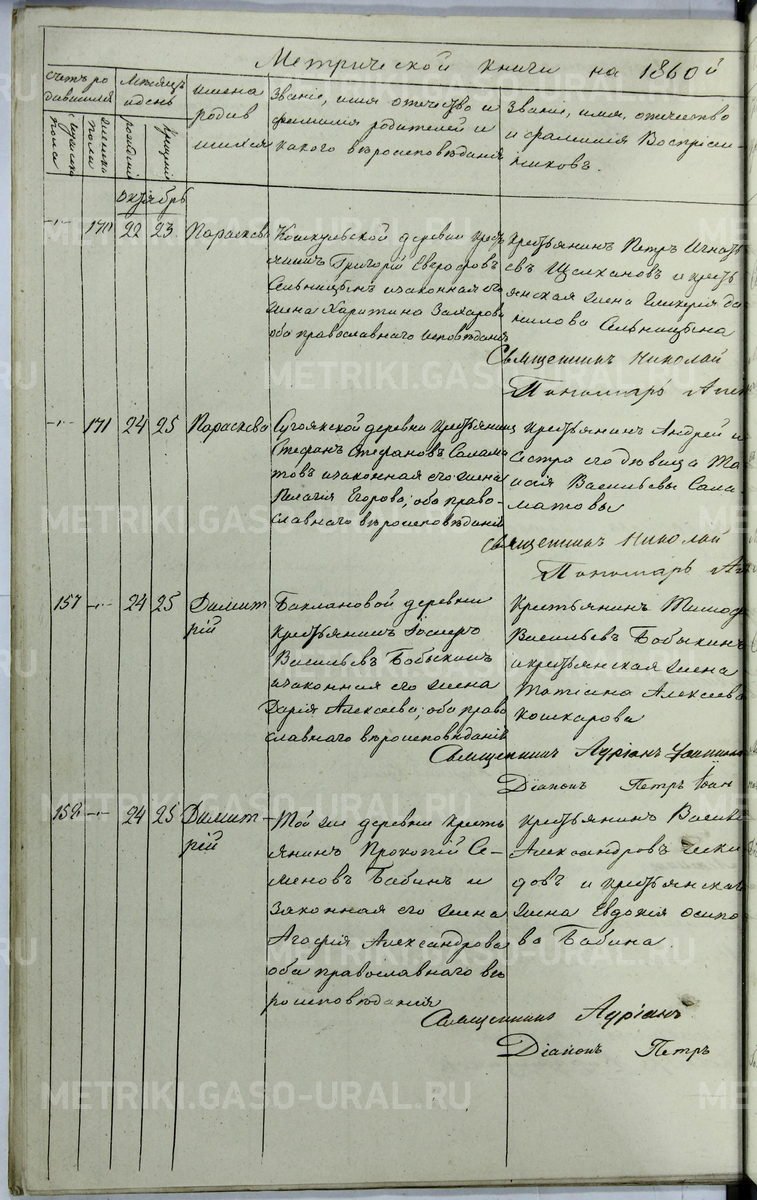 Метрической книги на 1860й
счетъ ро
дившихся
мужеска
пола
женска
полы
Мѣсяцъ
и день
рожденія
крещенія
имена
родив
шихся
Званіе, имя отечество и
фамилія родителей и
какого вѣроисповѣданія
Званіе, имя, отечество
и фамилія Воспріем-
никовъ.
Октябрь
170 22 23 Параскева
Кошкульской деревни крест
янинъ Григорій
Сельницынъ и законная его
жена Харитина Захарова
оба православнаго исповѣданія
Крестьянинъ Петръ Игнать
евъ и кресть
янская жена Гликерія Да
нилова Сельницына
Священникъ Николай
Пономарь
171 24 25 Параскева
Сугоякской деревни крестьянинъ
Стефанъ Стефановъ Салама
товъ и законная его жена
Пелагія Егорова; оба право-
славнаго вѣроисповѣданія
Крестьянинъ Андрей и
сестра его дѣвица Та
исія Васильевы Сала
матовы
Священникъ Николай
Пономарь
157 24 25 Димит
рій
Баклановой деревни
крестьянинъ
Васильевъ Бобыкинъ
и законная его жена
Дарія Алексеева; оба право
славнаго вѣроисповѣданія
Крестьянинъ
Васильевъ Бобыкинъ
и крестьянская жена
Татіана Алексеева
Кошкарова
Священникъ Адріанъ
Діаконъ Петръ Іоан
158 24 25 Димит-
рій
Той же деревни кресть
янинъ Прокопій Се-
меновъ Бабинъ и
законная его жена
Агафія Александрова
оба православнаго вѣ
роисповѣданія
Крестьянинъ
Александровъ
довъ и крестьянская
жена Евдокія Осипо
ва Бабина.
Священникъ Адріанъ
Діаконъ Петръ
METRIKI.GASO-URAL.RU